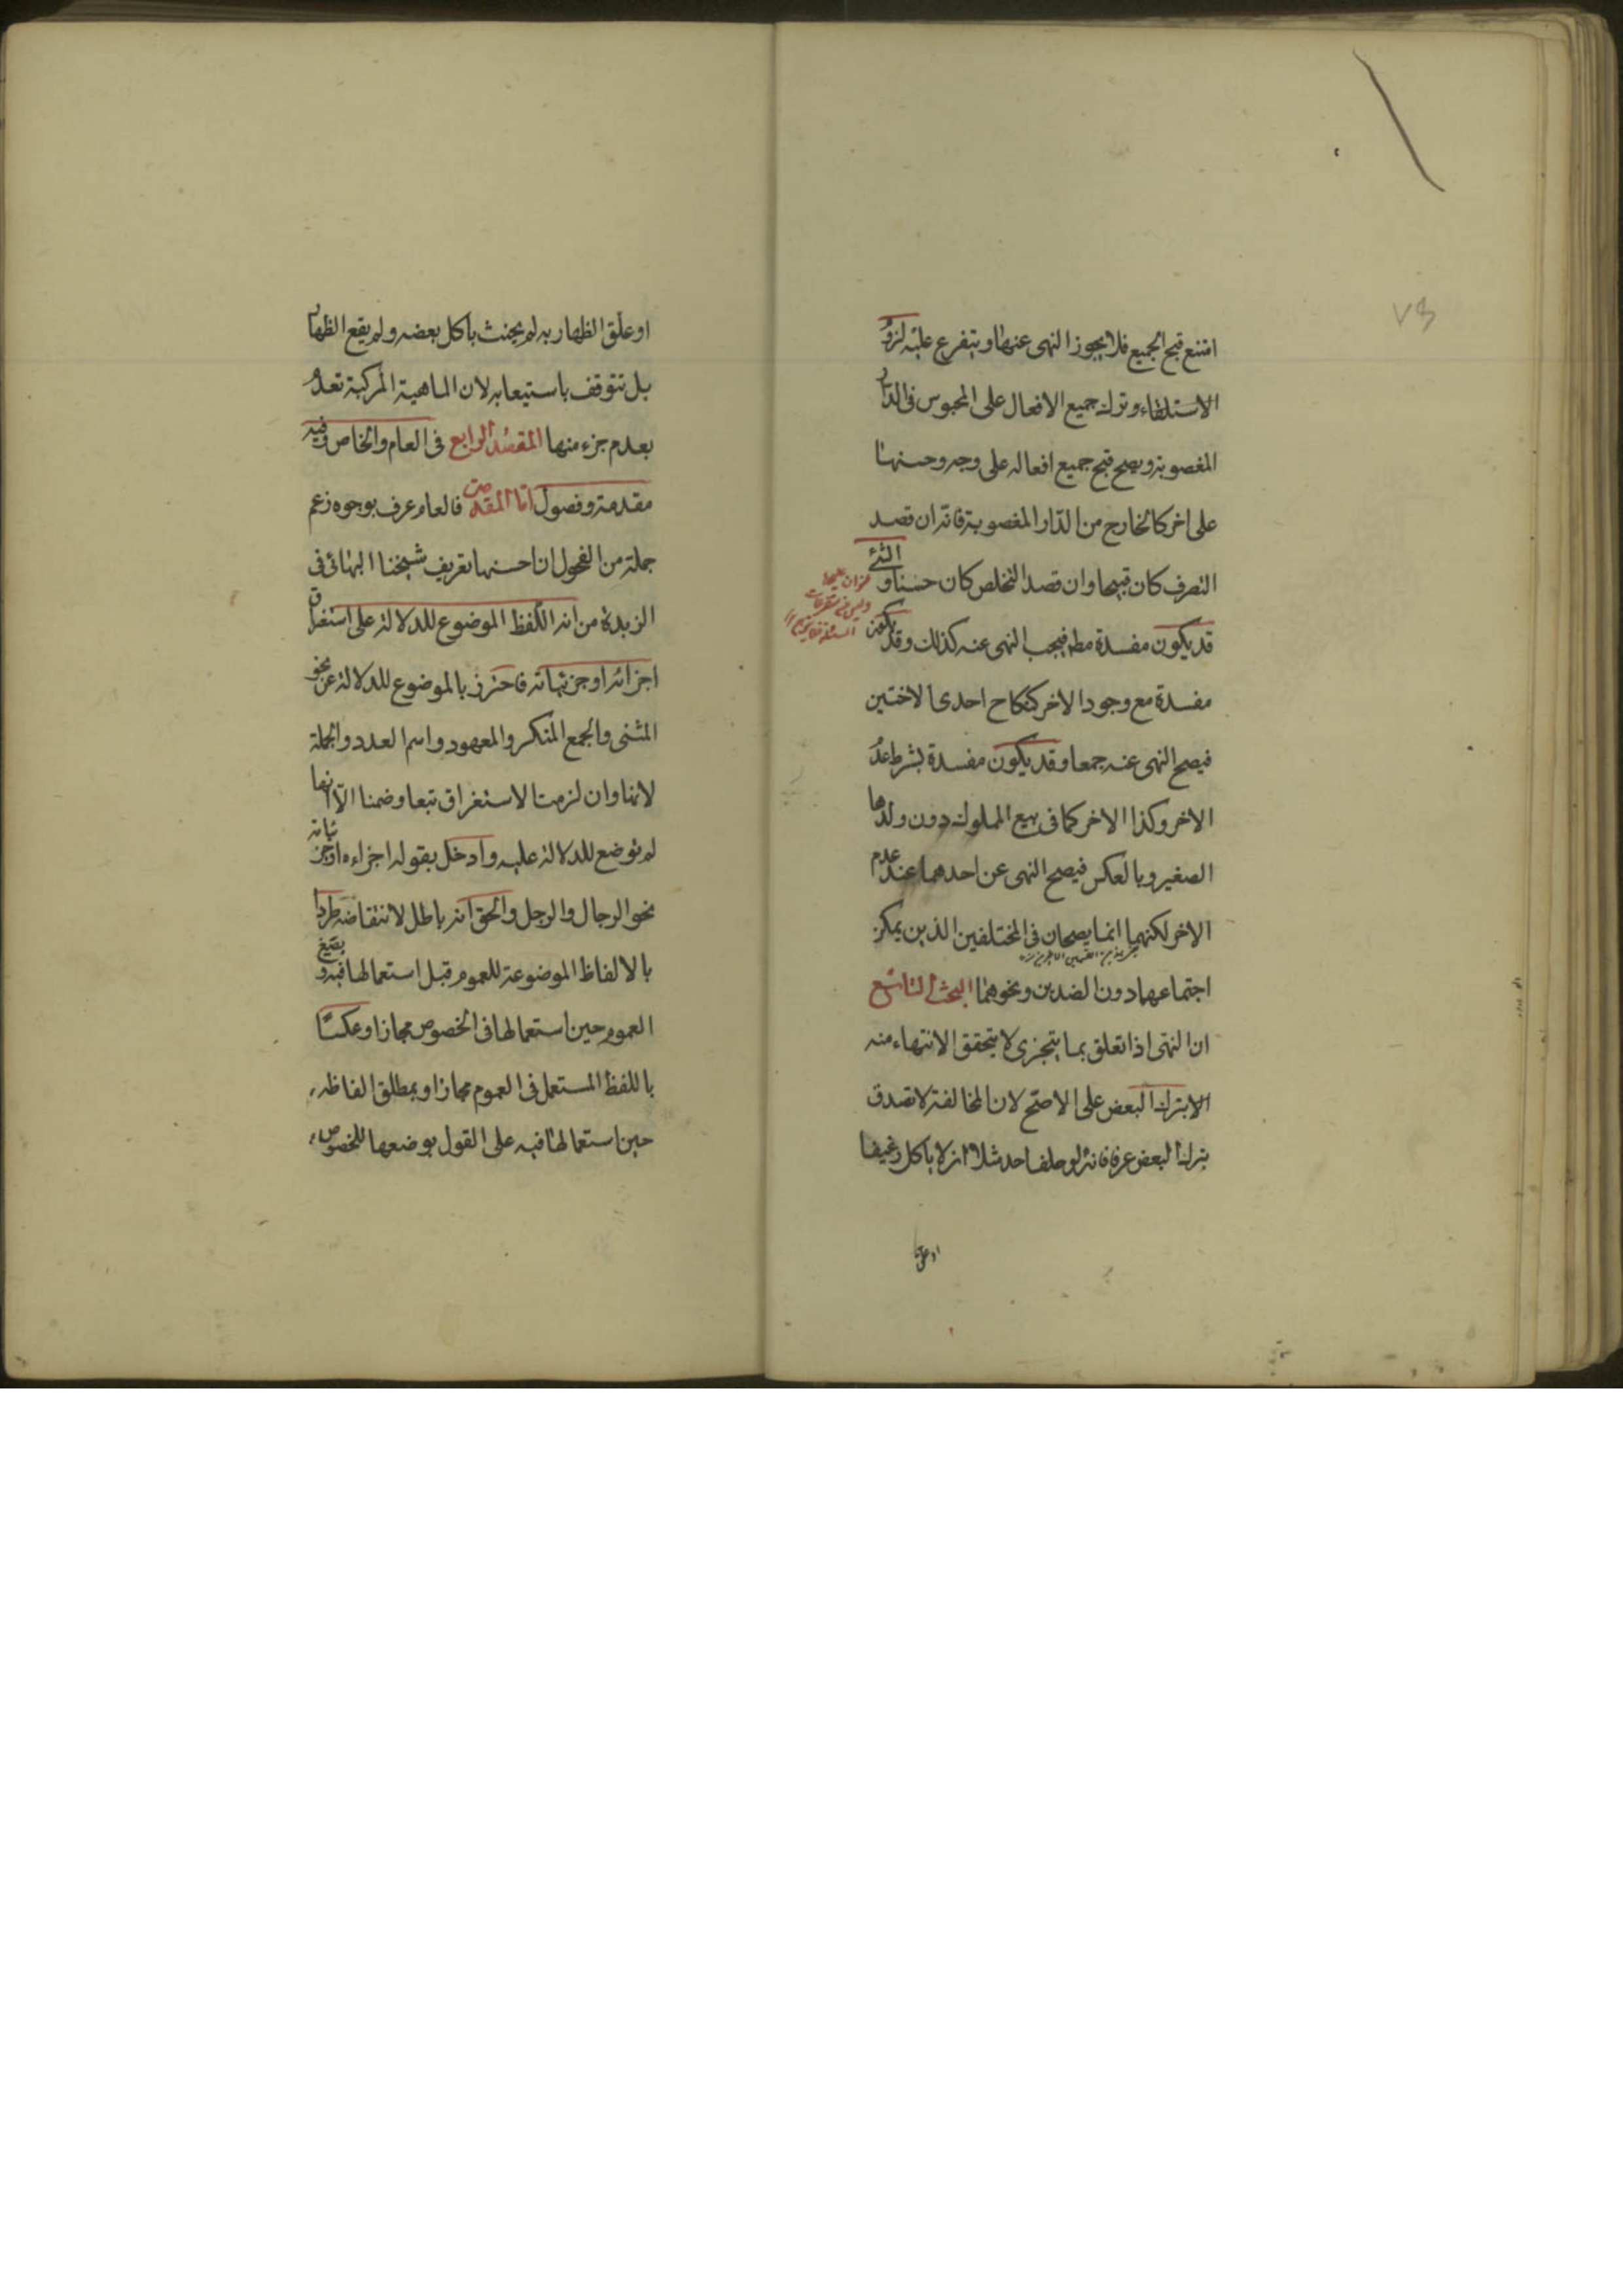 امتنع قبح الجميع فلا يجوز النهى عنها ويتفرع عليه لزوم
الاستلقاء وترك جميع الافعال على المحبوس فى الدار
المغصوبة ويصح قبح جميع افعاله على وجه وحسنها
على اخر كالخارج من الدار المغصوبة فانه ان قصد
التصرف كان قبيحا وان قصد التخلص كان حسنا والشئ
قد يكون مفسدة مطلقا فيجب النهى عنه كذلك وقد يكون
مفسدة مع وجود الاخر كنكاح احدى الاختين
فيصح النهى عنه جمعا وقد يكون مفسدة بشرط عدم
الاخر وكذا الاخر كما فى بيع المملوك دون ولدها
الصغير وبالعكس فيصح النهى عن احدهما عند عدم
الاخر لكنهما انما يصحان فى المختلفين الذين يمكن
اجتماعهما دون الضدين ونحوهما البحث التاسع
ان النهى اذا تعلق بما يتجزى لا يتحقق الانتهاء منه
الا بترك البعض على الاصح لان المخالفة لا تصدق
بترك البعض عرفا فانه لو حلف احد مثلا ان لا ياكل رغيفا
او علق
او علق الظهار به لم يحنث باكل بعضه ولم يقع الظهار
بل تتوقف باستيعابه لان الماهية المركبة تعدم
بعدم جزء منها المقصد الرابع فى العام والخاص وفيه
مقدمة وفصول اما المقدمة فالعام عرف بوجوه زعم
جملة من الفحول ان احسنها تعريف شيخنا البهائى فى
الزبدة من انه اللفظ الموضوع للدلالة على استغراق
اجزائه او جزئياته فاحترز بالموضوع للدلالة عن نحو
المثنى والجمع المنكر والمعهود واسم العدد والجملة
لانها وان لزمت الاستغراق تبعا وضمنا الا انها
لم توضع للدلالة عليه وادخل بقوله اجزاءه او جزئياته
نحو الرجال والرجل والحق انه باطل لانتقاضه طردا
بالالفاظ الموضوعة للعموم قبل استعمالها فيه وبصيغ
العموم حين استعمالها فى الخصوص مجازا وعكسا
باللفظ المستعمل فى العموم مجازا وبمطلق الفاظه
حين استعمالها فيه على القول بوضعها للخصوص